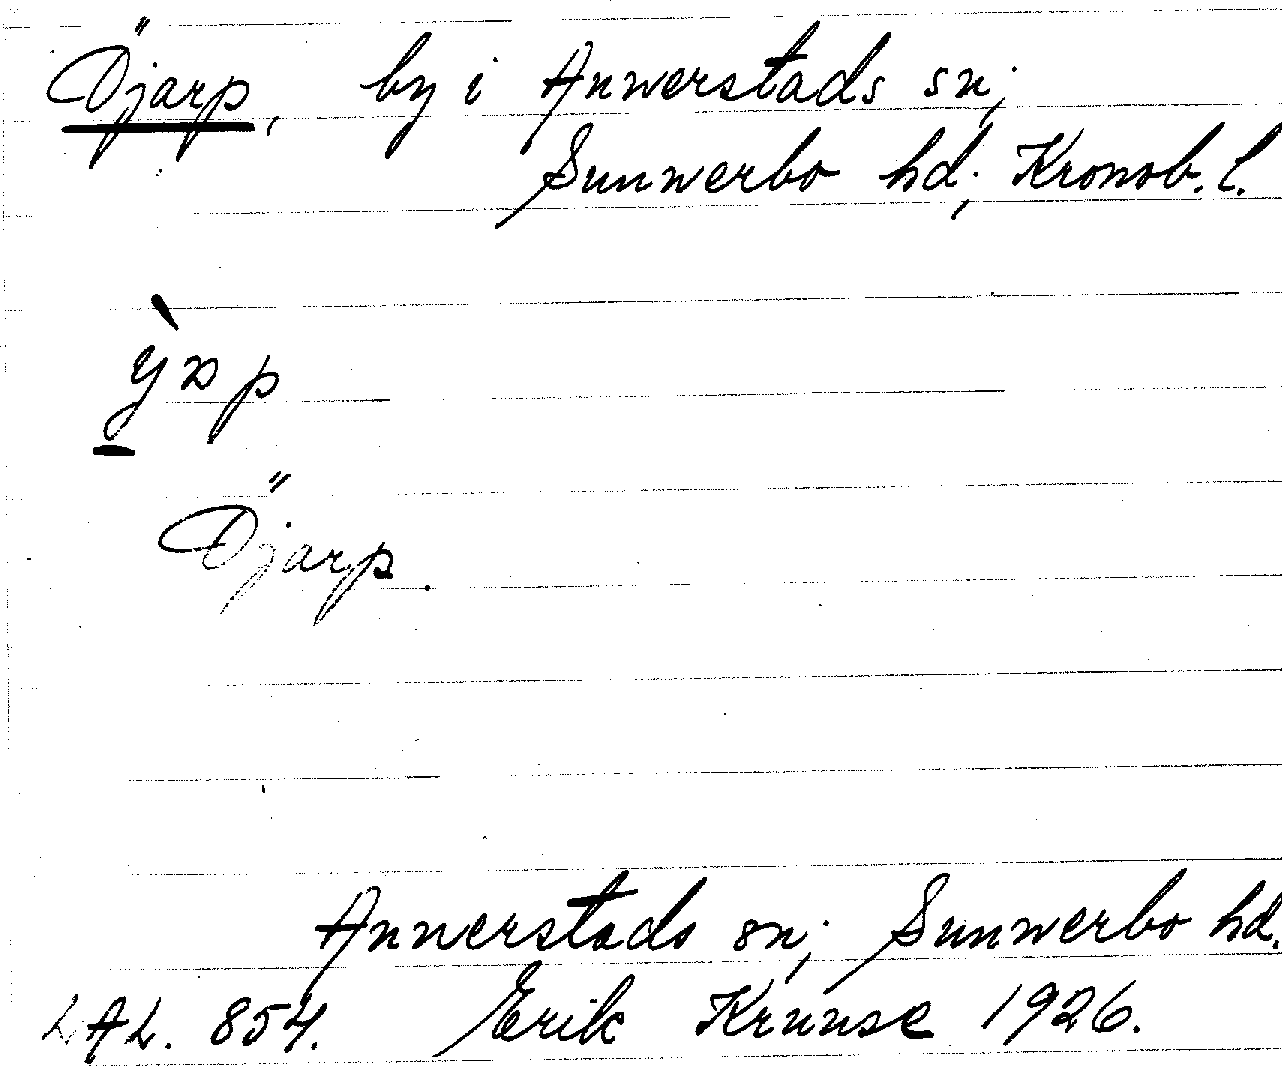 Öjarp, by i Annerstads sn;
Sunnerbo hd; Kronob. l.
Öjarp.
Annerstads sn; Sunnerbo hd.
LAL. 854. Erik Kruuse 1926.